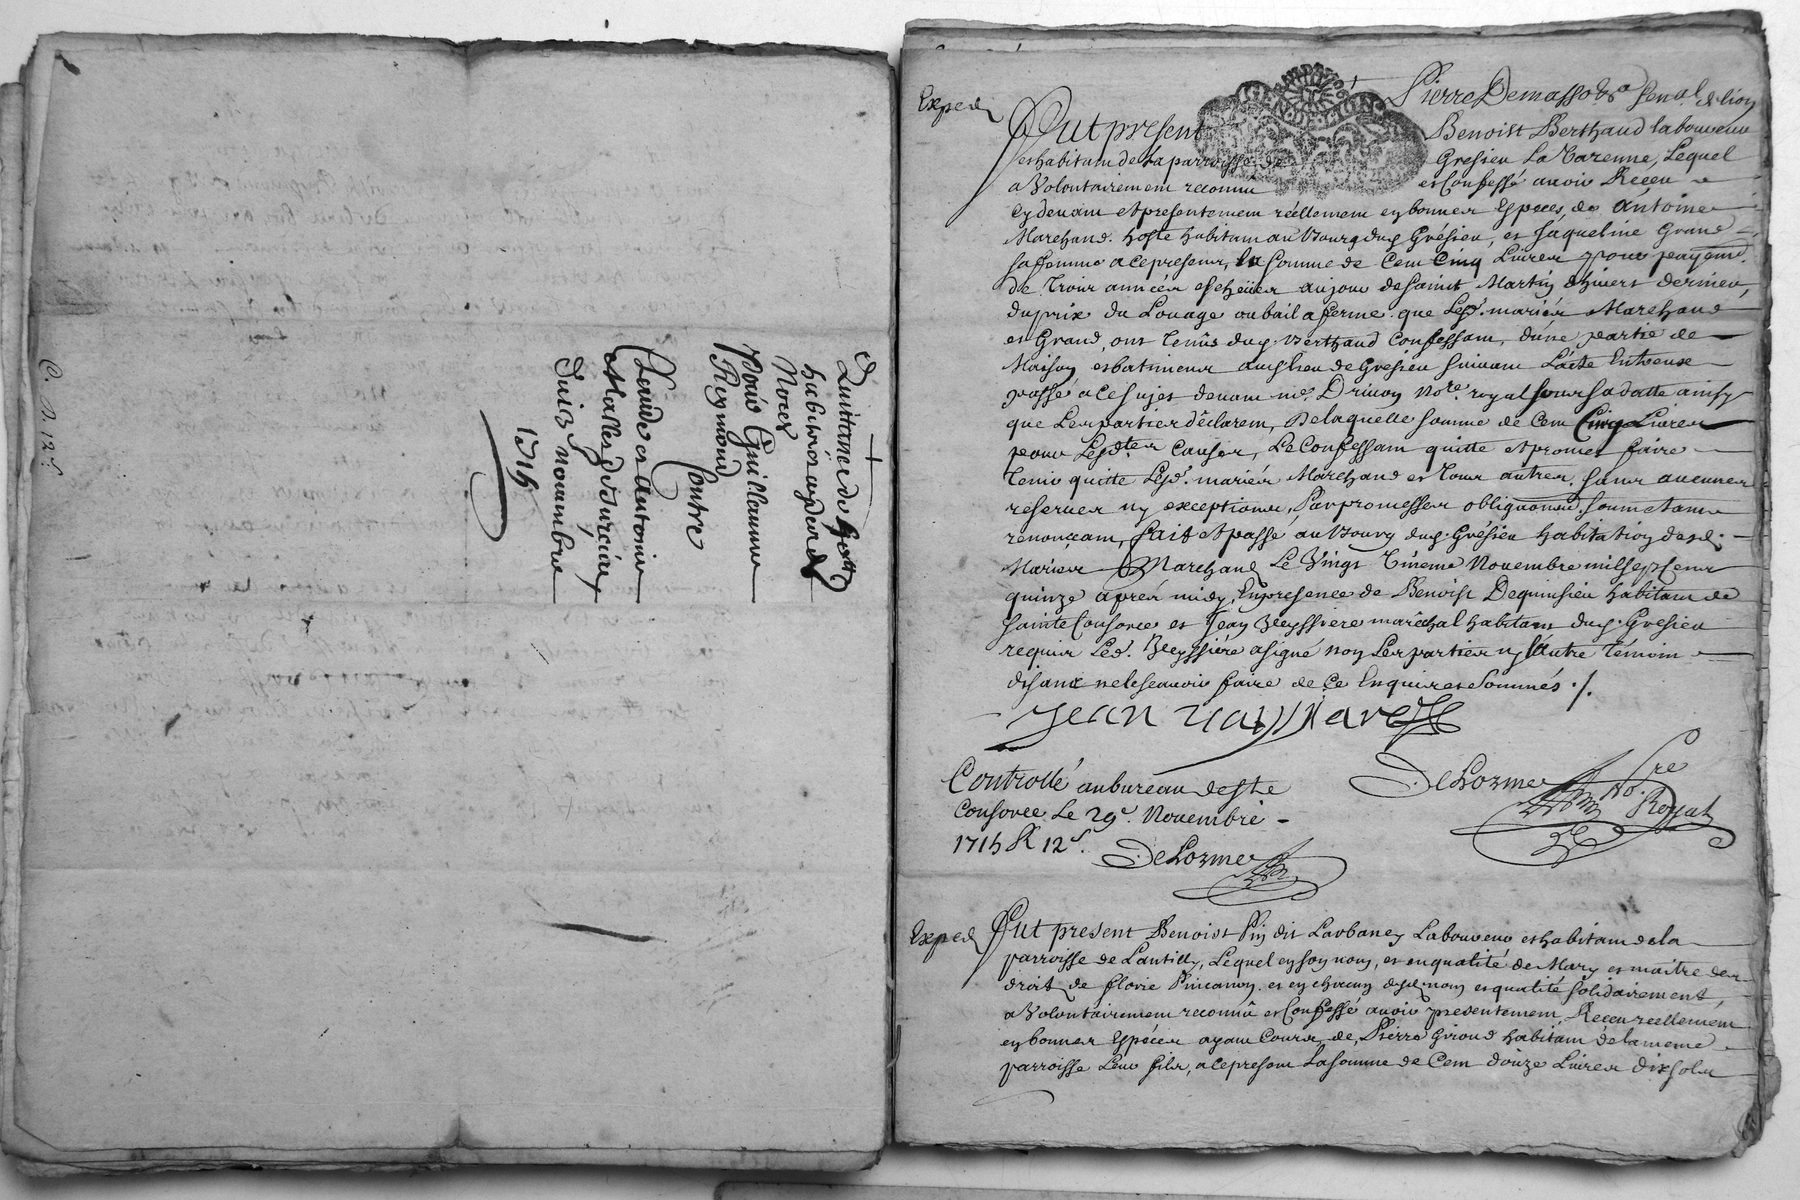 Quittance de
habits
Noces
Pour Guillaume
Reymond
Contre
Claude et Antoine
du 13 novambre
1715
C. A. 12 s.
Exped
Pierre Demasso
Fut present Benoist Berthaud laboureur
et habitant de la parroisse de Gresieu La Varenne, Lequel
a Volontairement reconnu et Confessé avoir Receu
cy devant et presentement réellement en bonnes Especes, de antoine
Marchand. hoste habitant au Bourg dud Gresieu, et Jaqueline Grand
sa femme a ce presens, la somme de Cent Cinq Livres pour payemt.
de Trois années escheües au jour de Saint Martin d'hivert dernier,
du prix du Louage ou bail a ferme que Lesd. mariés Marchand
et Grand, ont Tenus dud. Berthaud Confessant, d'une partie de
Maison et batimens aud lieu de Gresieu suivant L'acte Entr'eux
passé a ce sujet devant me. Drivon Nore. royal sous sa datte ainsy
que Les parties déclarent, De laquelle somme de Cent Cinq Livres
pour Lesdtes Causes, Le Confessant quitte et promet faire
Tenir quitte Lesd. mariés Marchand et Tous autres. sans aucunes
reserves ny exceptions, Par promesses obligations soumetans
renonçant, fait et passé au Bourg dud. Grésieu habitation desd.
Mariés Marchand Le Vingt Novembre mil sept cent
quinze aprés midy, En presence de Benoist Dequinsieu habitant de
Sainte Consorce et Jean Veyssiere maréchal habitant dud. Gresieu
requis Led. Veyssiére a signé non Les parties ny l'autre Témoin
disant ne le scavoir faire de ce Enquis et Sommés ./.
Jean
DeLorme No.re
Royal
Controllé au bureau de Ste
Consorce Le 29e. Novembre
1715 R 12 s.
DeLorme
Exped
Fut present Benoist Pin dit Larbaney Laboureur et habitant de la
parroisse de Lantilly, Lequel en son nom, et en qualité de Mary et maitre des
droits de florie et en chacun desd. noms et qualité solidairement,
a Volontairement reconnu et Confessé avoir presentement Receu reellement
en bonnes Espéces ayant Cours, de Pierre Giroud habitant de la meme
parroisse Leur fils, a ce present La somme de Cent douze Livres dix sols